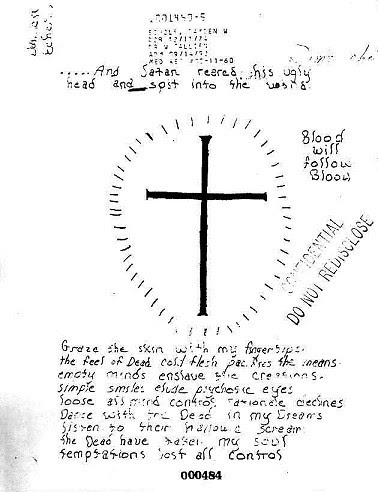 ECHOLS, DAMIEN W
..... And Satan reared his ugly
head and spit into the wind.
Blood
will
follow
Blood
CONFIDENTIAL
DO NOT REDISCLOSE
Graze the skin with my fingertips.
the feel of Dead cold flesh pacifies the means.
empty minds enslave the creations.
simple smiles elude psychotic eyes
loose all mind control, rationale declines
Dance with the Dead in my Dreams
listen to their hallowed scream
the Dead have taken my soul
temptations lost all control
000484